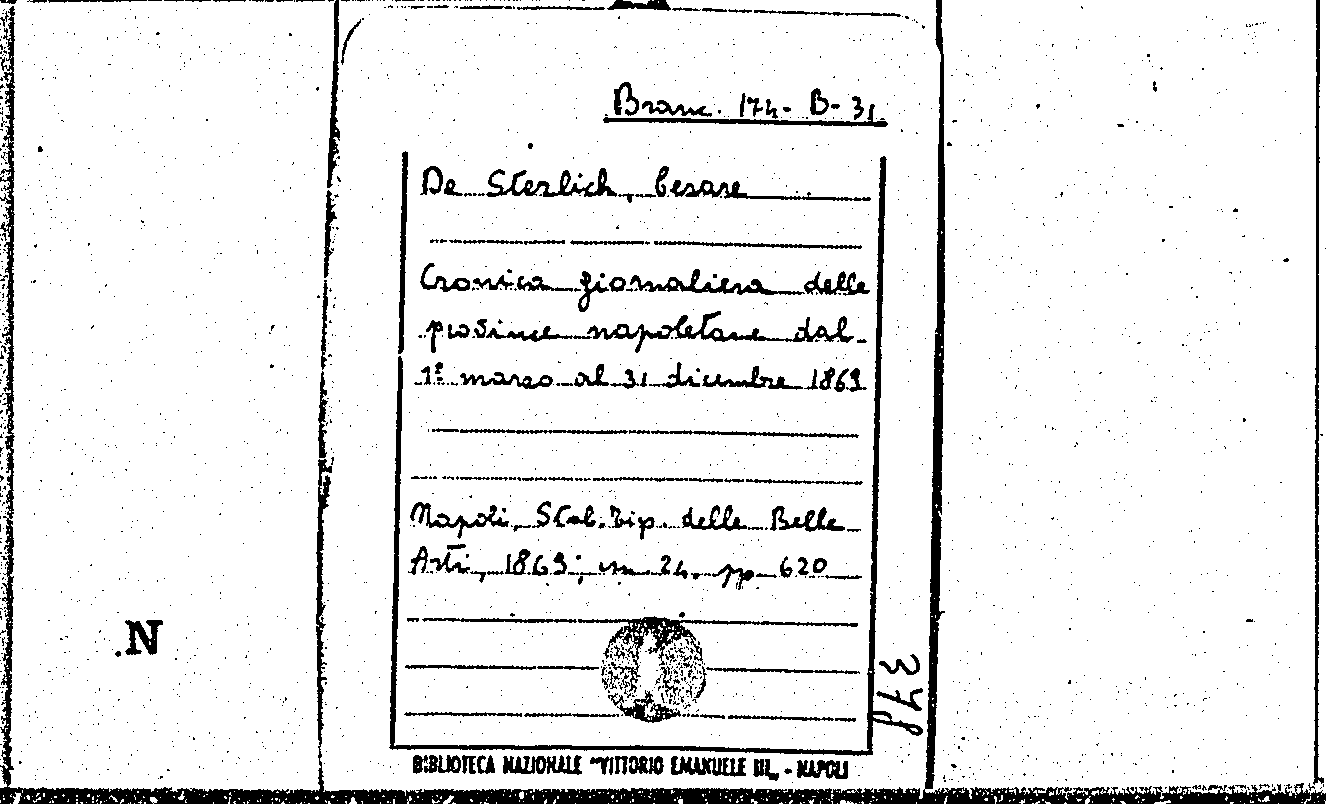 Branc. 174- B- 31
De Sterlich, Cesare
Cronica giornaliera delle
province napoletane dal
1º marzo al 31 dicembre 1869
Napoli, Stab. Tip. delle Belle
Arti, 1869; in 24. pp 620
N
BIBLIOTECA NAZIONALE "VITTORIO EMANUELE III„ - NAPOLI